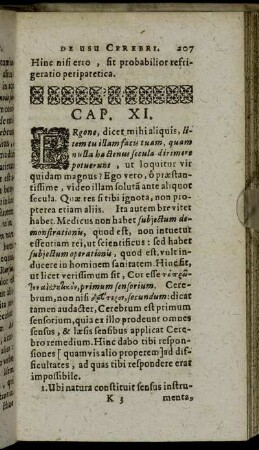 DE USU CEREBRI. 207
Hinc nisi erro, sit probabilior refri-
geratio peripatetica.
CAP. XI.
ERgone, dicet mihi aliquis, li-
tem tu illam facis tuam, quam
nulla hactenus secula dirimere
potuerunt, ut loquitur vir
quidam magnus? Ego vero, ô præstan-
tissime, video illam solutā ante aliquot
secula. Quæ res si tibi ignota, non pro-
pterea etiam aliis. Ita autem breviter
habet. Medicus non habet subjectum de-
monstrationis, quod est, non intuetur
essentiam rei, ut scientificus: sed habet
subjectum operationis, quod est, vult in-
ducere in hominem sanitatem. Hinc sit,
ut licet verissimum sit, Cor esse
primum sensorium. Cere-
brum, non nisi secundum: dicat
tamen audacter, Cerebrum est primum
sensorium, quia ex illo prodeunt omnes
sensus, & læsis sensibus applicat Cere-
bro remedium. Hinc dabo tibi respon-
siones [quamvis alio properem] ad dif-
ficultates, ad quas tibi respondere erat
impossibile.
1. Ubi natura constituit sensus instru-
K 3 menta,